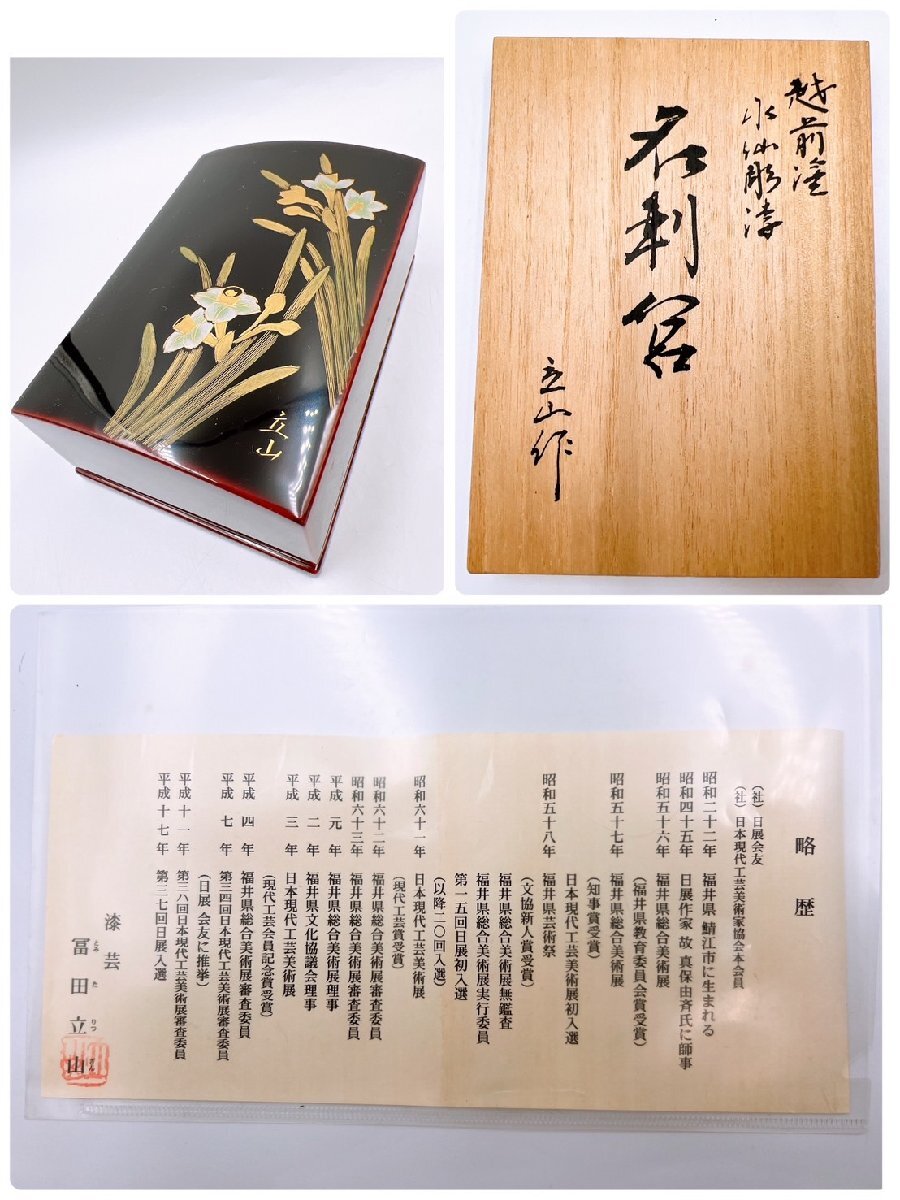 立山
越前塗
水仙彫漆
名刺宮
立山作
略歴
（社）日展会友
（社）日本現代工芸美術家協会本会員
昭和二十二年 福井県鯖江市に生まれる
昭和四十五年 日展作家 故 真保由斉氏に師事
昭和五十六年 福井県総合美術展
（福井県教育委員会賞受賞）
昭和五十七年 福井県総合美術展
（知事賞受賞）
日本現代工芸美術展初入選
昭和五十八年 福井県芸術祭
（文協新人賞受賞）
福井県総合美術展無鑑査
福井県総合美術展実行委員
第一五回日展初入選
（以降二〇回入選）
昭和六十一年 日本現代工芸美術展
（現代工芸賞受賞）
昭和六十二年 福井県総合美術展審査委員
昭和六十三年 福井県総合美術展審査委員
平成元年 福井県総合美術展理事
平成二年 福井県文化協議会理事
平成三年 日本現代工芸美術展
（現代工芸会員記念賞受賞）
平成四年 福井県総合美術展審査委員
平成七年 第三四回日本現代工芸美術展審査委員
（日展会友に推挙）
平成十一年 第三八回日本現代工芸美術展審査委員
平成十七年 第三七回日展入選
漆芸
冨田立山
とみたりつざん